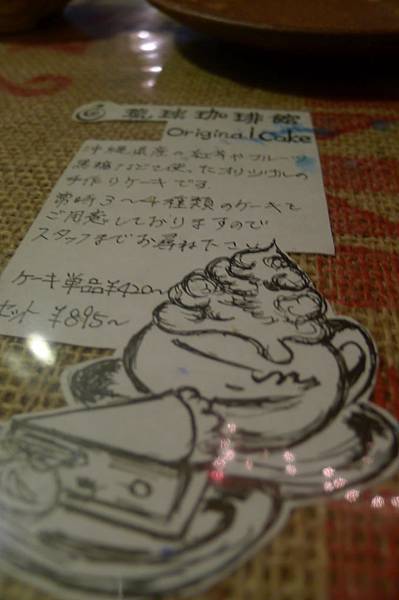 琉球珈琲館
Original Cake
沖縄県産の紅芋やフルーツ
黒糖などを使ったオリジナルの
手作りケーキです。
常時3〜4種類のケーキを
ご用意しておりますので
スタッフまでお尋ね下さい
ケーキ単品¥420〜
セット ¥895〜